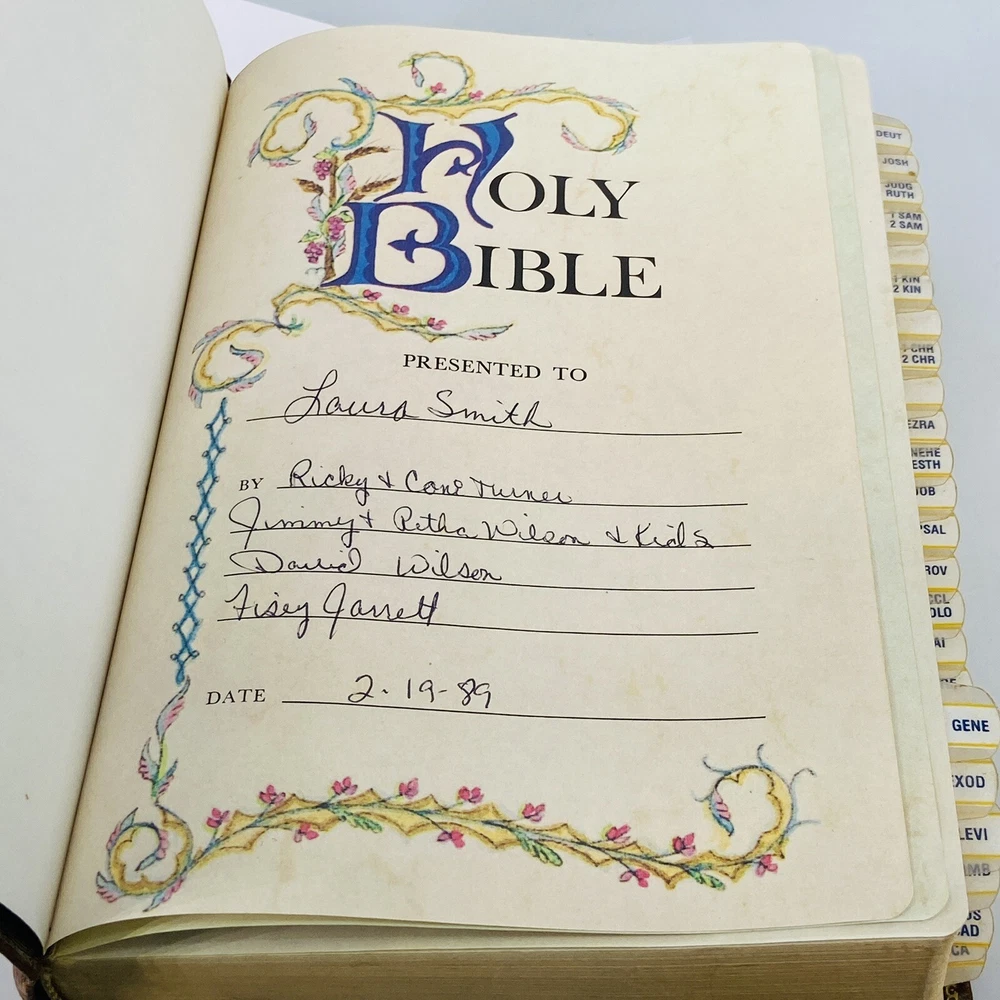 HOLY
BIBLE
PRESENTED TO
Laura Smith
BY Ricky & Turner
Jimmy & Retha Wilson & Kids
David Wilson
Jarrett
DATE 2-19-89
DEUT
JOSH
JUDG
RUTH
1 SAM
2 SAM
1 KIN
2 KIN
1 CHR
2 CHR
EZRA
NEHE
ESTH
JOB
PSAL
ROV
CCL
OLO
AI
GENE
EXOD
LEVI
MB
AD
CA